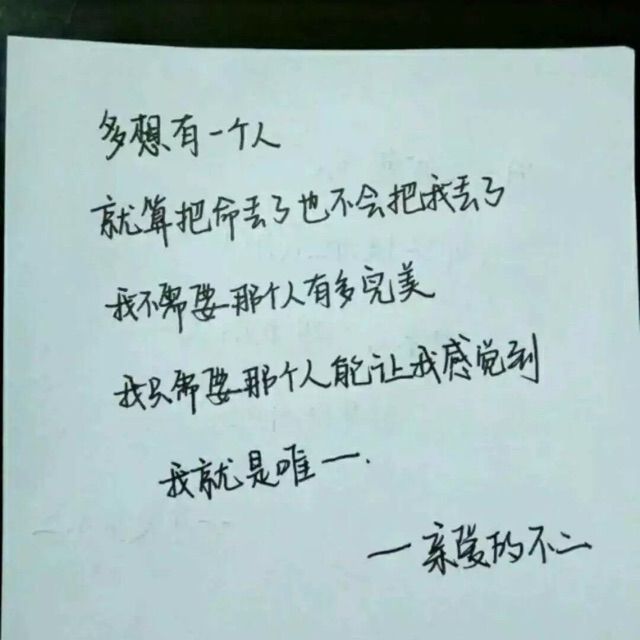 多想有一个人
就算把命丢了也不会把我丢了
我不需要那个人有多完美
我只需要那个人能让我感觉到
我就是唯一.
—亲爱的不二